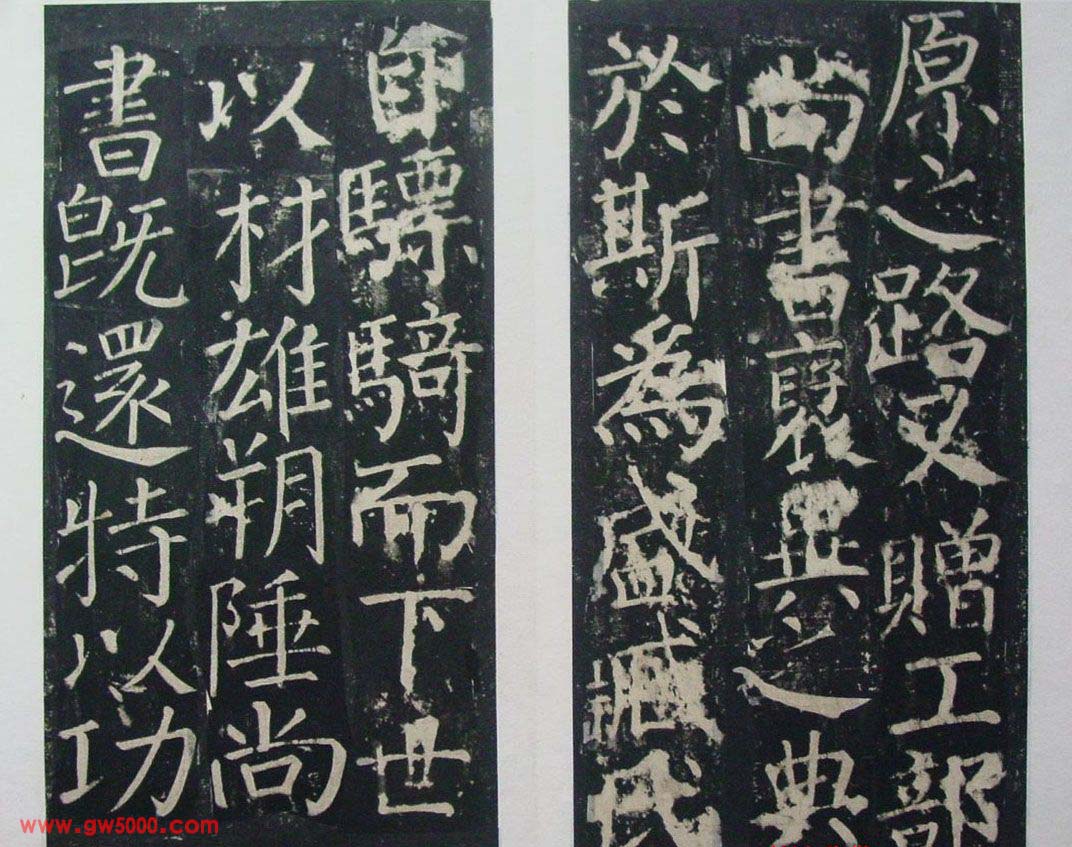 原之路又贈工部
尚書襃異之典
於斯為盛臧氏
自驃騎而下世
以材雄朔陲尚
書既還特以功
www.gw5000.com